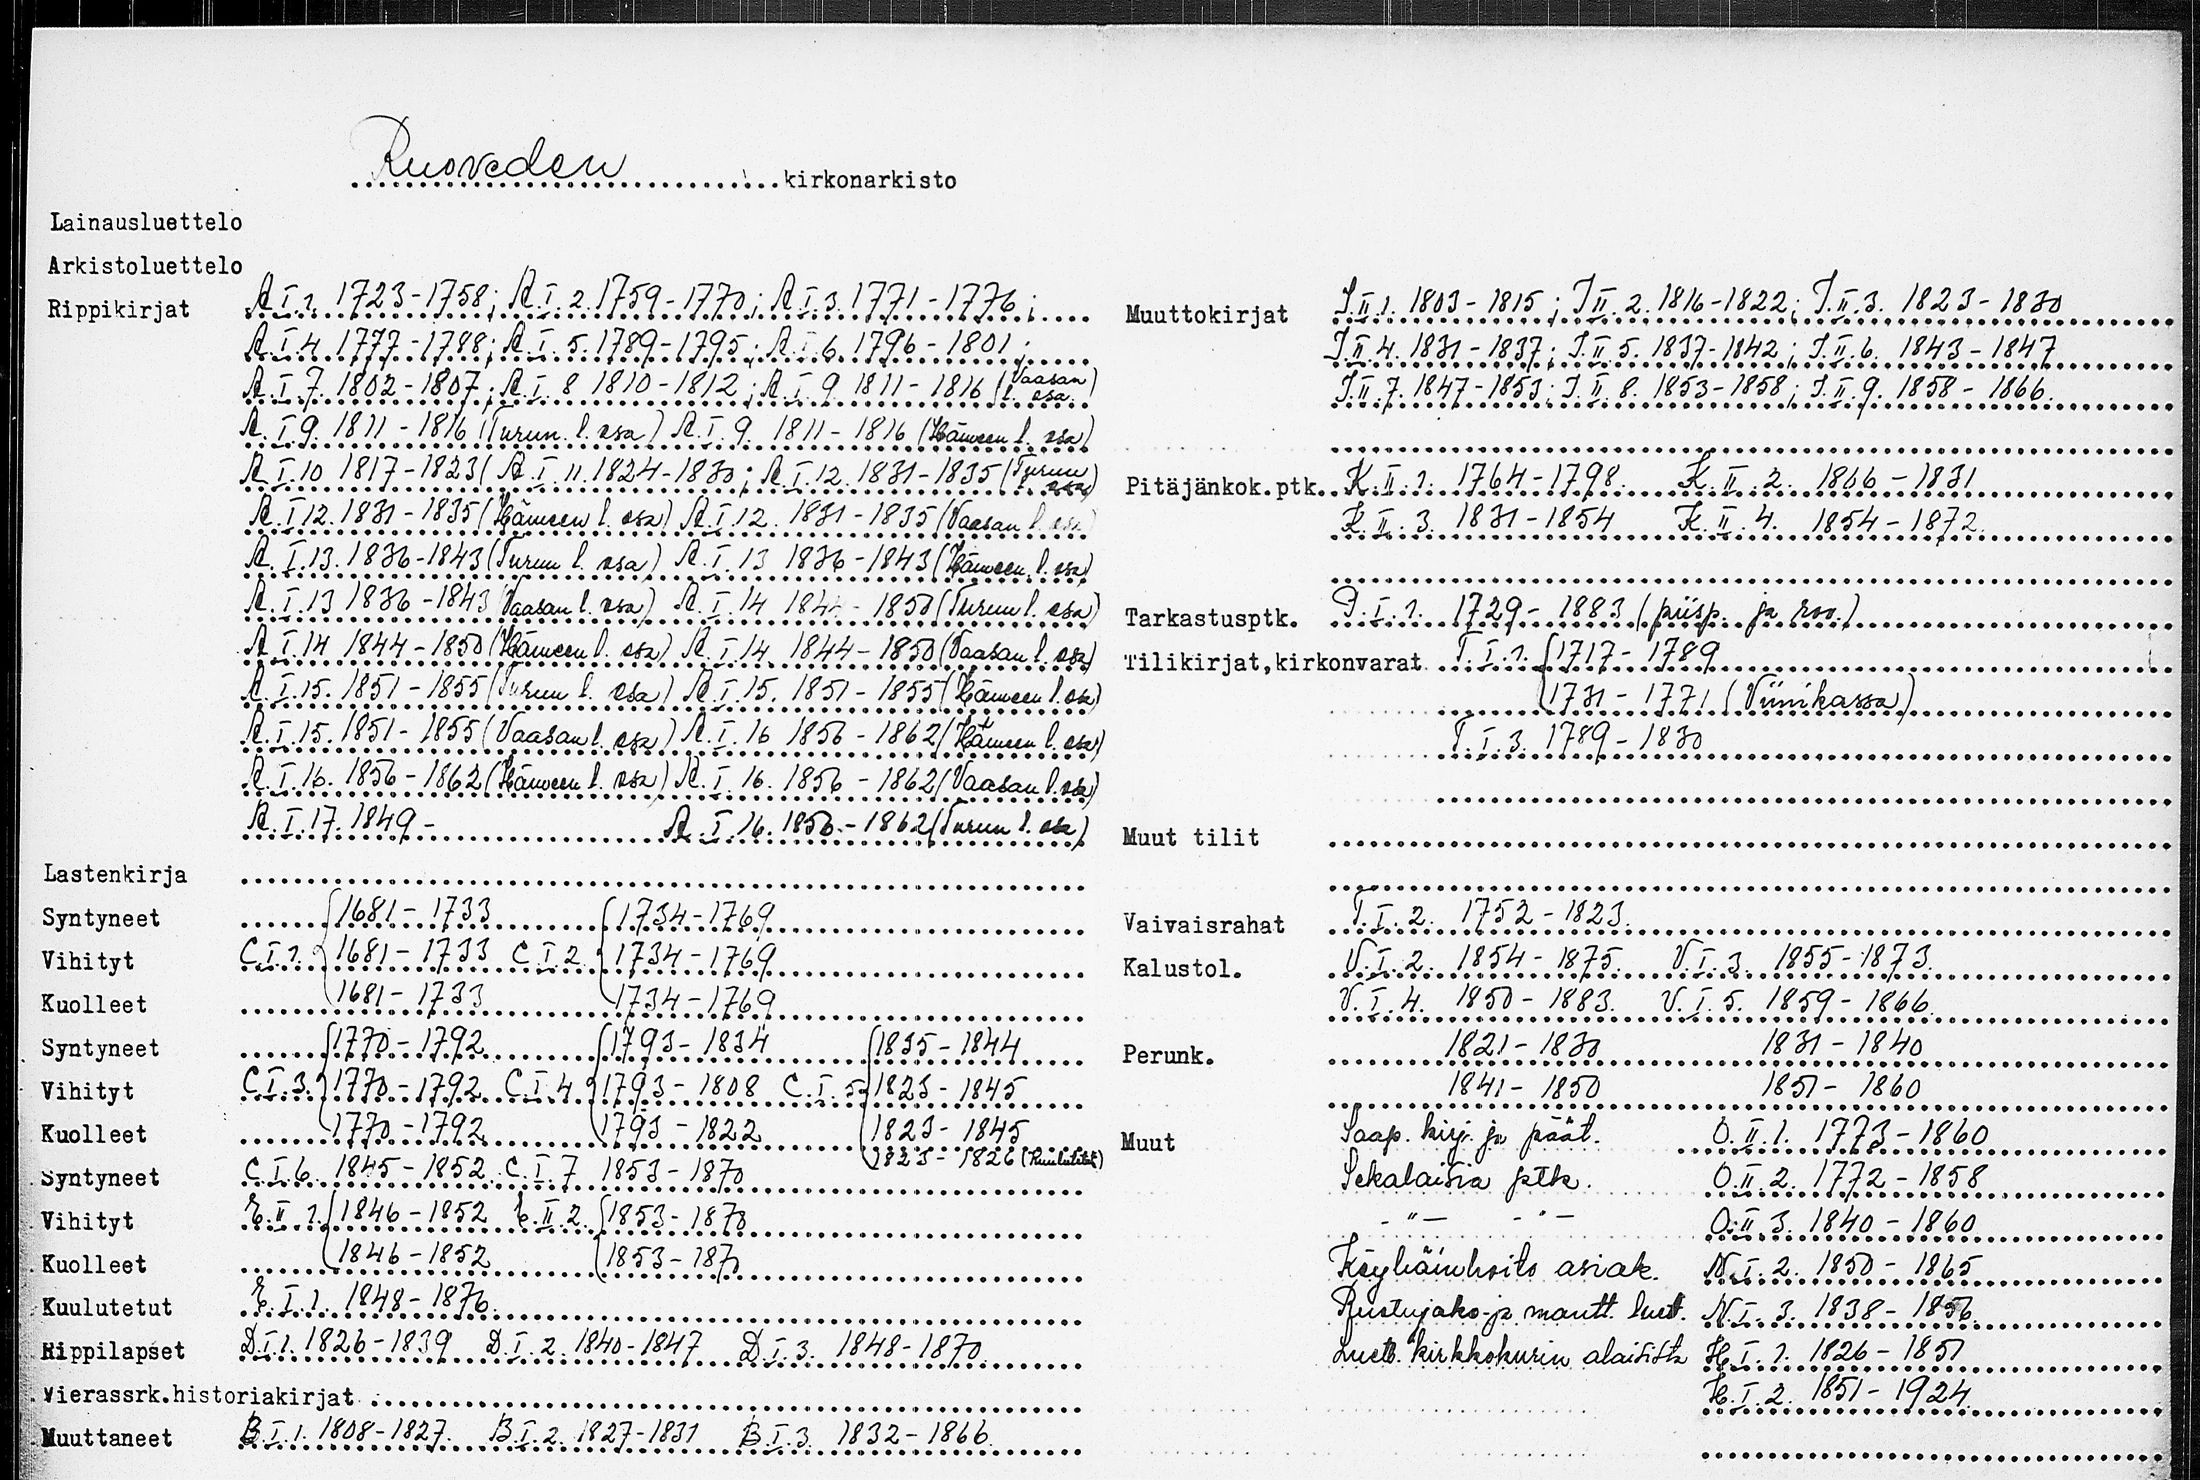 Ruoveden kirkonarkisto
Lainausluettelo
Arkistoluettelo
Rippikirjat A.I.1. 1723-1758; A.I.2. 1759-1770; A.I.3. 1771-1776;
A.I.4. 1777-1788; A.I.5. 1789-1795; A.I.6. 1796-1801;
A.I.7. 1802-1807; A.I.8 1810-1812; A.I.9. 1811-1816 (Vaasan l. osa)
A.I.9. 1811-1816 (Turun l. osa) A.I.9. 1811-1816 (Hämeen l. osa)
A.I.10 1817-1823( A.I.11. 1824-1830; A.I.12. 1831-1835 (Turun osa)
A.I.12. 1831-1835 (Hämeen l. osa) A.I.12. 1831-1835 (Vaasan l. osa)
A.I.13. 1836-1843 (Turun l. osa) A.I.13 1836-1843 (Hämeen l. osa)
A.I.13 1836-1843 (Vaasan l. osa) A.I.14 1844-1850 (Turun l. osa)
A.I.14 1844-1850 (Hämeen l. osa) A.I.14. 1844-1850 (Vaasan l. osa)
A.I.15. 1851-1855 (Turun l. osa) A.I.15. 1851-1855 (Hämeen l. osa)
A.I.15. 1851-1855 (Vaasan l. osa) A.I.16 1856-1862 (Hämeen l. osa)
A.I.16. 1856-1862 (Hämeen l. osa) A.I.16. 1856-1862 (Vaasan l. osa)
A.I.17. 1849- A.I.16. 1856-1862 (Turun l. osa)
Lastenkirja
Syntyneet 1681-1733 1734-1769
Vihityt C.I.1. 1681-1733 C.I.2. 1734-1769
Kuolleet 1681-1733 1734-1769
Syntyneet 1770-1792 1793-1834 1835-1844
Vihityt C.I.3. 1770-1792 C.I.4 1793-1808 C.I.5 1823-1845
Kuolleet 1770-1792 1793-1822 1823-1845
1823-1826 (Kuulutetut)
Syntyneet C.I.6. 1845-1852 C.I.7 1853-1870
Vihityt E.II.1. 1846-1852 E.II.2. 1853-1870
Kuolleet 1846-1852 1853-1870
Kuulutetut E.I.1. 1848-1876.
Rippilapset D.I.1. 1826-1839 D.I.2. 1840-1847 D.I.3. 1848-1870
Vierassrk.historiakirjat
Muuttaneet B.I.1. 1808-1827. B.I.2. 1827-1831 B.I.3. 1832-1866
Muuttokirjat J.II.1. 1803-1815; J.II.2. 1816-1822; J.II.3. 1823-1830
J.II.4. 1831-1837; J.II.5. 1837-1842; J.II.6. 1843-1847
J.II.7. 1847-1853; J.II.8. 1853-1858; J.II.9. 1858-1866.
Pitäjänkok.ptk. K.II.1. 1764-1798. K.II.2. 1806-1831
K.II.3. 1831-1854 K.II.4. 1854-1872.
Tarkastusptk. P.I.1. 1729-1883 (piisp. ja rov.)
Tilikirjat,kirkonvarat T.I.1. 1717-1789
1731-1771 (Viinikassa)
T.I.3. 1789-1830
Muut tilit
Vaivaisrahat T.I.2. 1752-1823.
Kalustol. V.I.2. 1854-1875. V.I.3. 1855-1873.
V.I.4. 1850-1883. V.I.5. 1859-1866.
Perunk. 1821-1830 1831-1840
1841-1850 1851-1860
Muut Saap. kirj. ja päät. O.II.1. 1773-1860
Sekalaisia ptk. O.II.2. 1772-1858
-"- -"- O.II.3. 1840-1860
Köyhäinhoito asiak. N.I.2. 1850-1865
Ruotujako-ja mantt. luet. N.I.3. 1838-1856.
Luett. kirkkokurin alaisista H.I.1. 1826-1851
H.I.2. 1851-1924